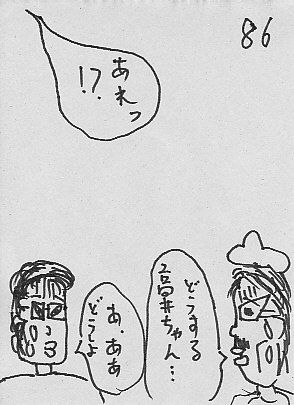 86
あれっ
!?
どうする
高井ちゃん…
あ、ああ
どうしよ